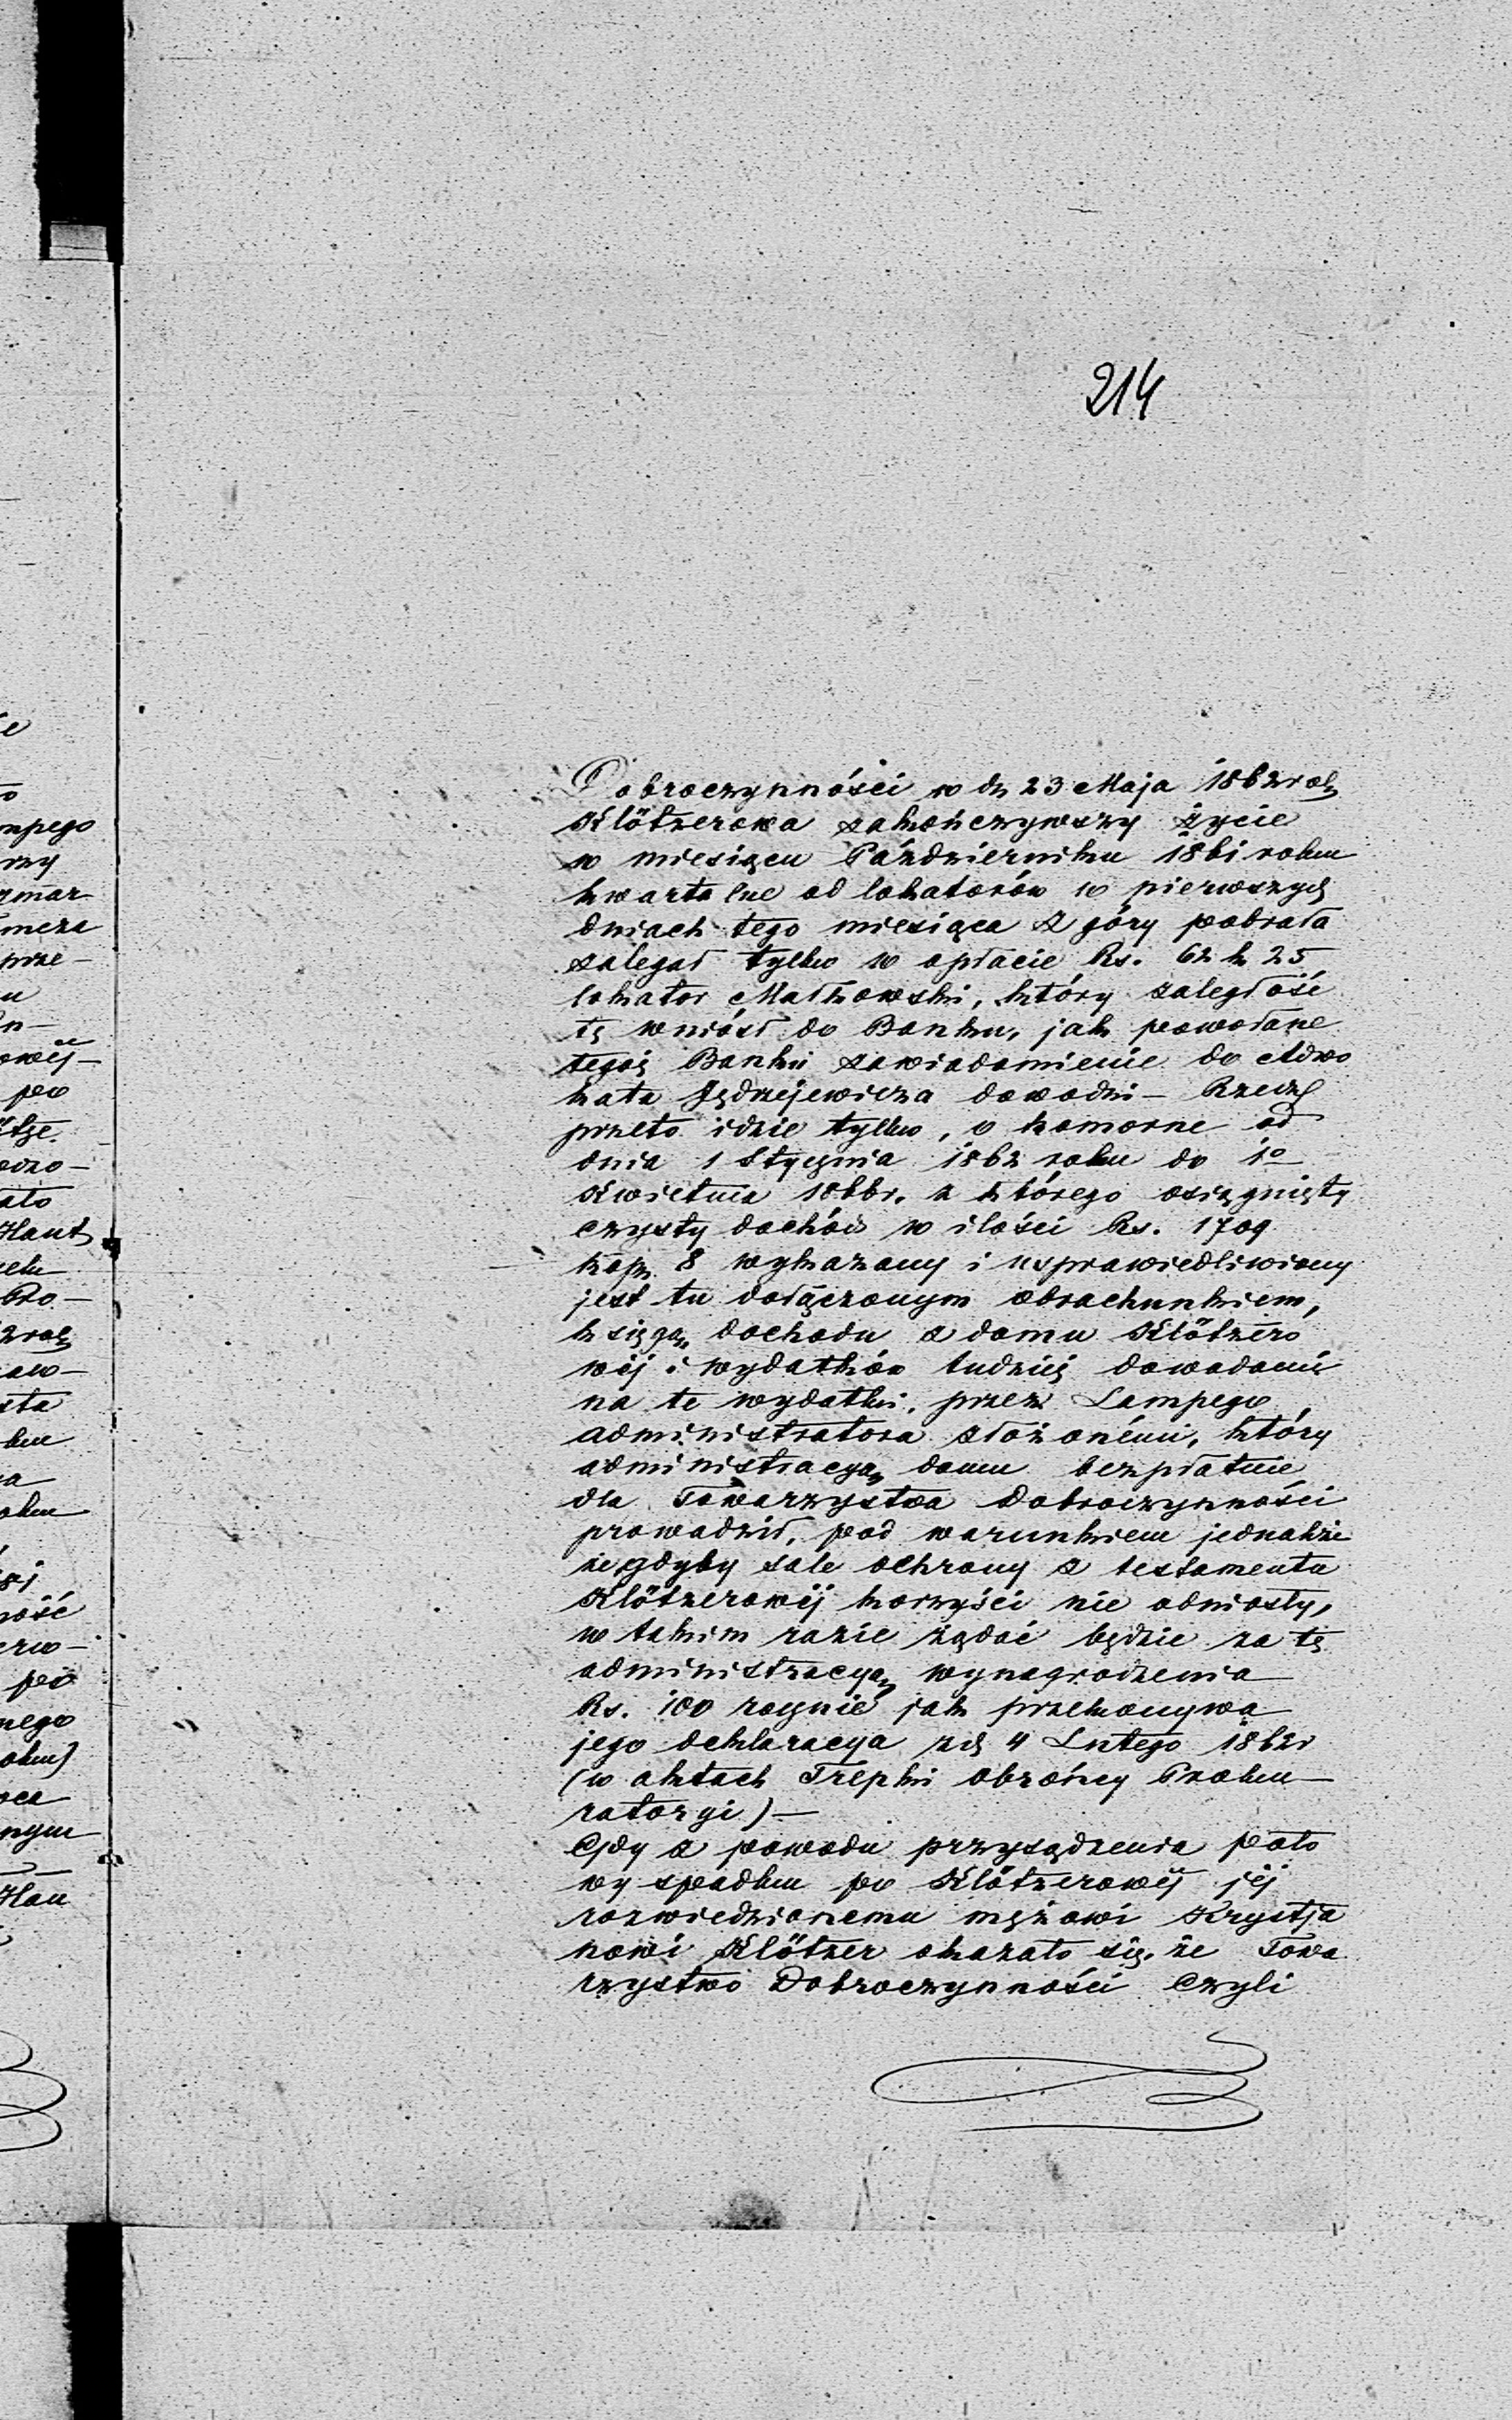 214
Dobroczynności w dn 23 Maja 1862 rok
Klötzerowa zakończywszy życie
w miesiącu Październiku 1861 roku
kwartalne od lokatorów w pierwszych
dniach tego miesiąca z góry pobrała
zalegał tylko w opłacie Rs. 62 k 25
lokator Małkowski, który zaległość
tę wniósł do Banku, jak powołane
tegoż Banku zawiadomienie do Adwo
kata Jędrzejewicza dowodzi – Rzecz
przeto idzie tylko, o komorne od
dnia 1 Stycznia 1862 roku do 1o
Kwietnia 1866 r. z którego osiągnięty
czysty dochód w ilości Rs. 1709
kop. 8 wykazany i usprawiedliwiony
jest tu dołączonym obrachunkiem,
księgą dochodu z domu Klötzero
wéj i wydatków tudzież dowodami
na te wydatki, przez Lampego
administratora złożonémi, który
administracyą domu bezpłatnie
dla Towarzystwa Dobroczynności
prowadził, pod warunkiem jednakże
że gdyby sale ochrony z testamentu
Klötzerowéj korzyści nie odniosły,
w takim razie żądać będzie za tę
administracyą wynagrodzenia
Rs. 100 rocznie jak przekonywa
jego deklaracya z d 4 Lutego 1862 r
(w aktach Trepki obrońcy Proku–
ratoryi) –
Gdy z powodu przysądzenia poło
wy spadku po Klötzerowéj jéj
rozwiedzionemu mężowi Krystja
nowi Klötzer okazało się, że Towa
rzystwo Dobroczynności czyli